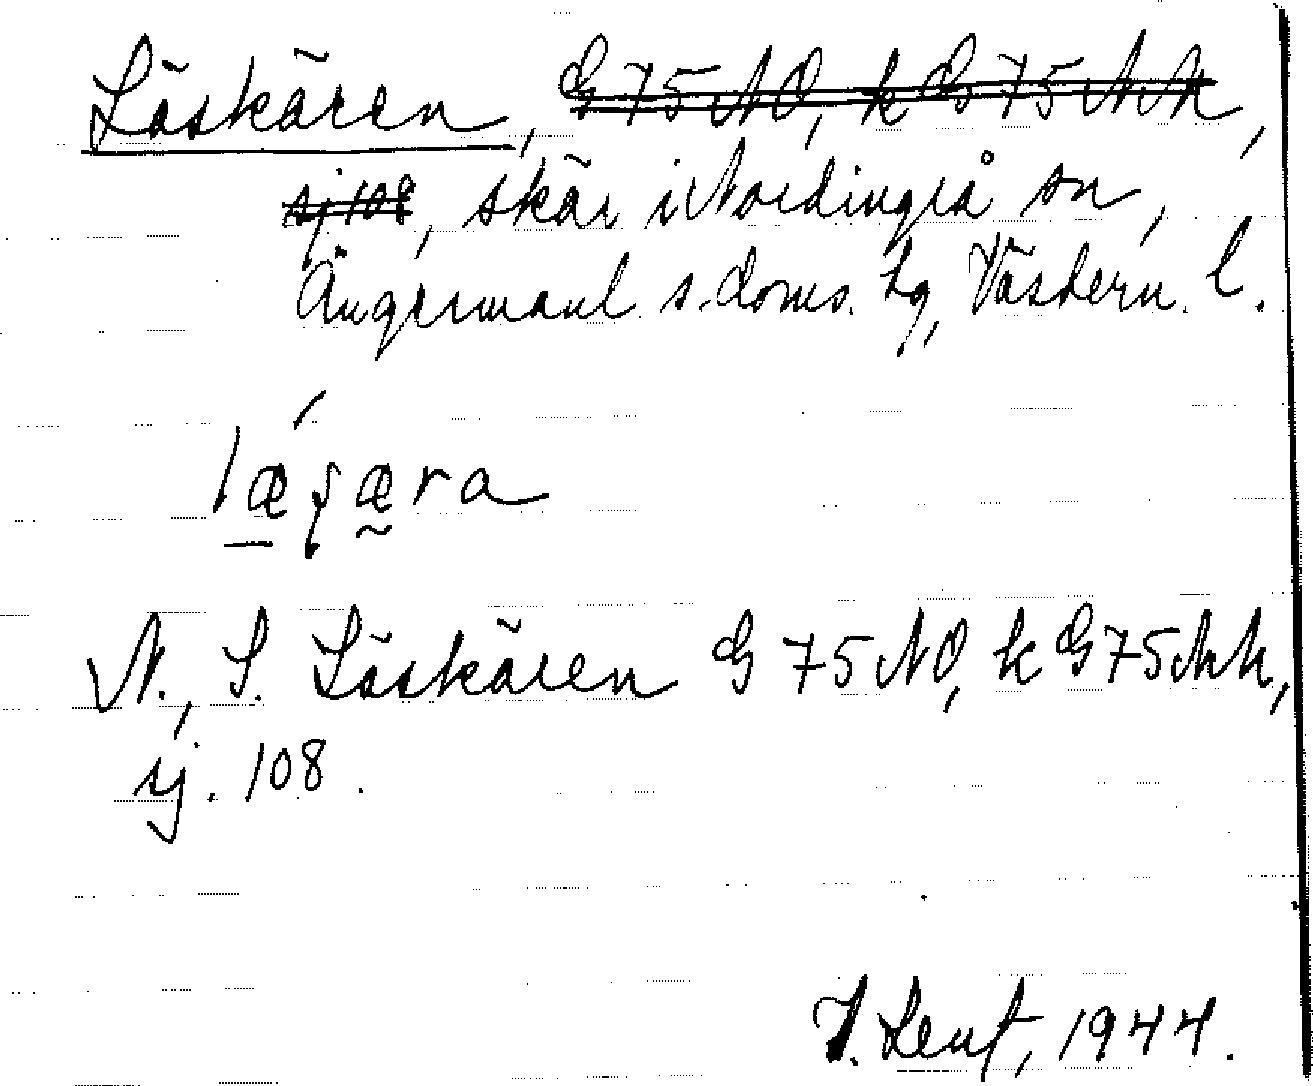 Läskären, G 75 NO, k G 75 NN,
sj 108, skär i Nordingrå sn,
Ångermanl s. doms. tg, Västern. l.
læʂæra
N., S. Läskären G 75 NO, k G 75 NN,
sj. 108.
1944.